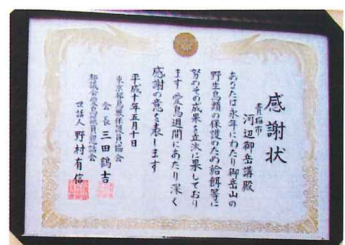 感謝状
青梅市
河辺御岳講殿
あなたは永年にわたり御岳山の
野生鳥類の保護のため給餌等に
努めその成果を立派に果しており
ます愛鳥週間にあたり深く
感謝の意を表します
平成十年五月十日
東京都鳥獣保護員協会
会長 三田鶴吉
都議会愛鳥議員懇話会
世話人 野村有信